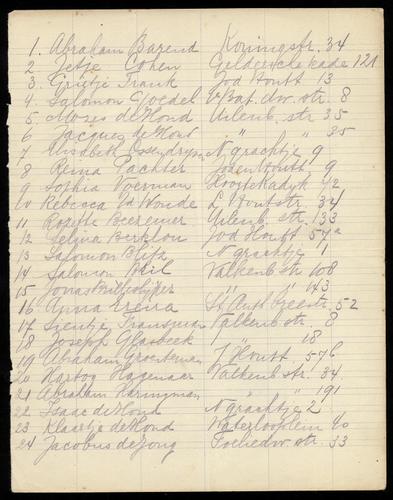 1. Abraham Barend Koningstr. 34
2 Jetje Cohen Geldersche kade 121
3. Grietje Frank Jod Houtt 13
4. Salomon Goedel Bat. dw. str. 8
5 Mozes de Hond Uilenb. str 35
6 Jacques de Hond " " 35
7 Elisabeth N grachtje 9
8 Reina Pachter Joden Houtt 9
9 Sophia Voerman Hoogtekadijk 72
10 Rebecca vd Woude L Houtstr. 34
11 Rozette Beezemer Uilenb. str. 133
12 Selina Berklou Jod Houtt 57a
13 Salomon Blitz N grachtje 1
14 Salomon Bril Valkenb str 108
15 Jonas " " 143
16 Anna St. Ant. breestr. 52
17 Sientje Fransman Valkenb str. 8
18 Joseph Glasbeek " 18
19 Abraham Gronteman J Houtt 576
20 Hartog Hagenaar Valkenb str. 34
21 Abraham Haringman " " 191
22 Isaac de Hond N grachtje 2
23 Klaartje de Hond Waterlooplein 40
24 Jacobus de Jong str. 33